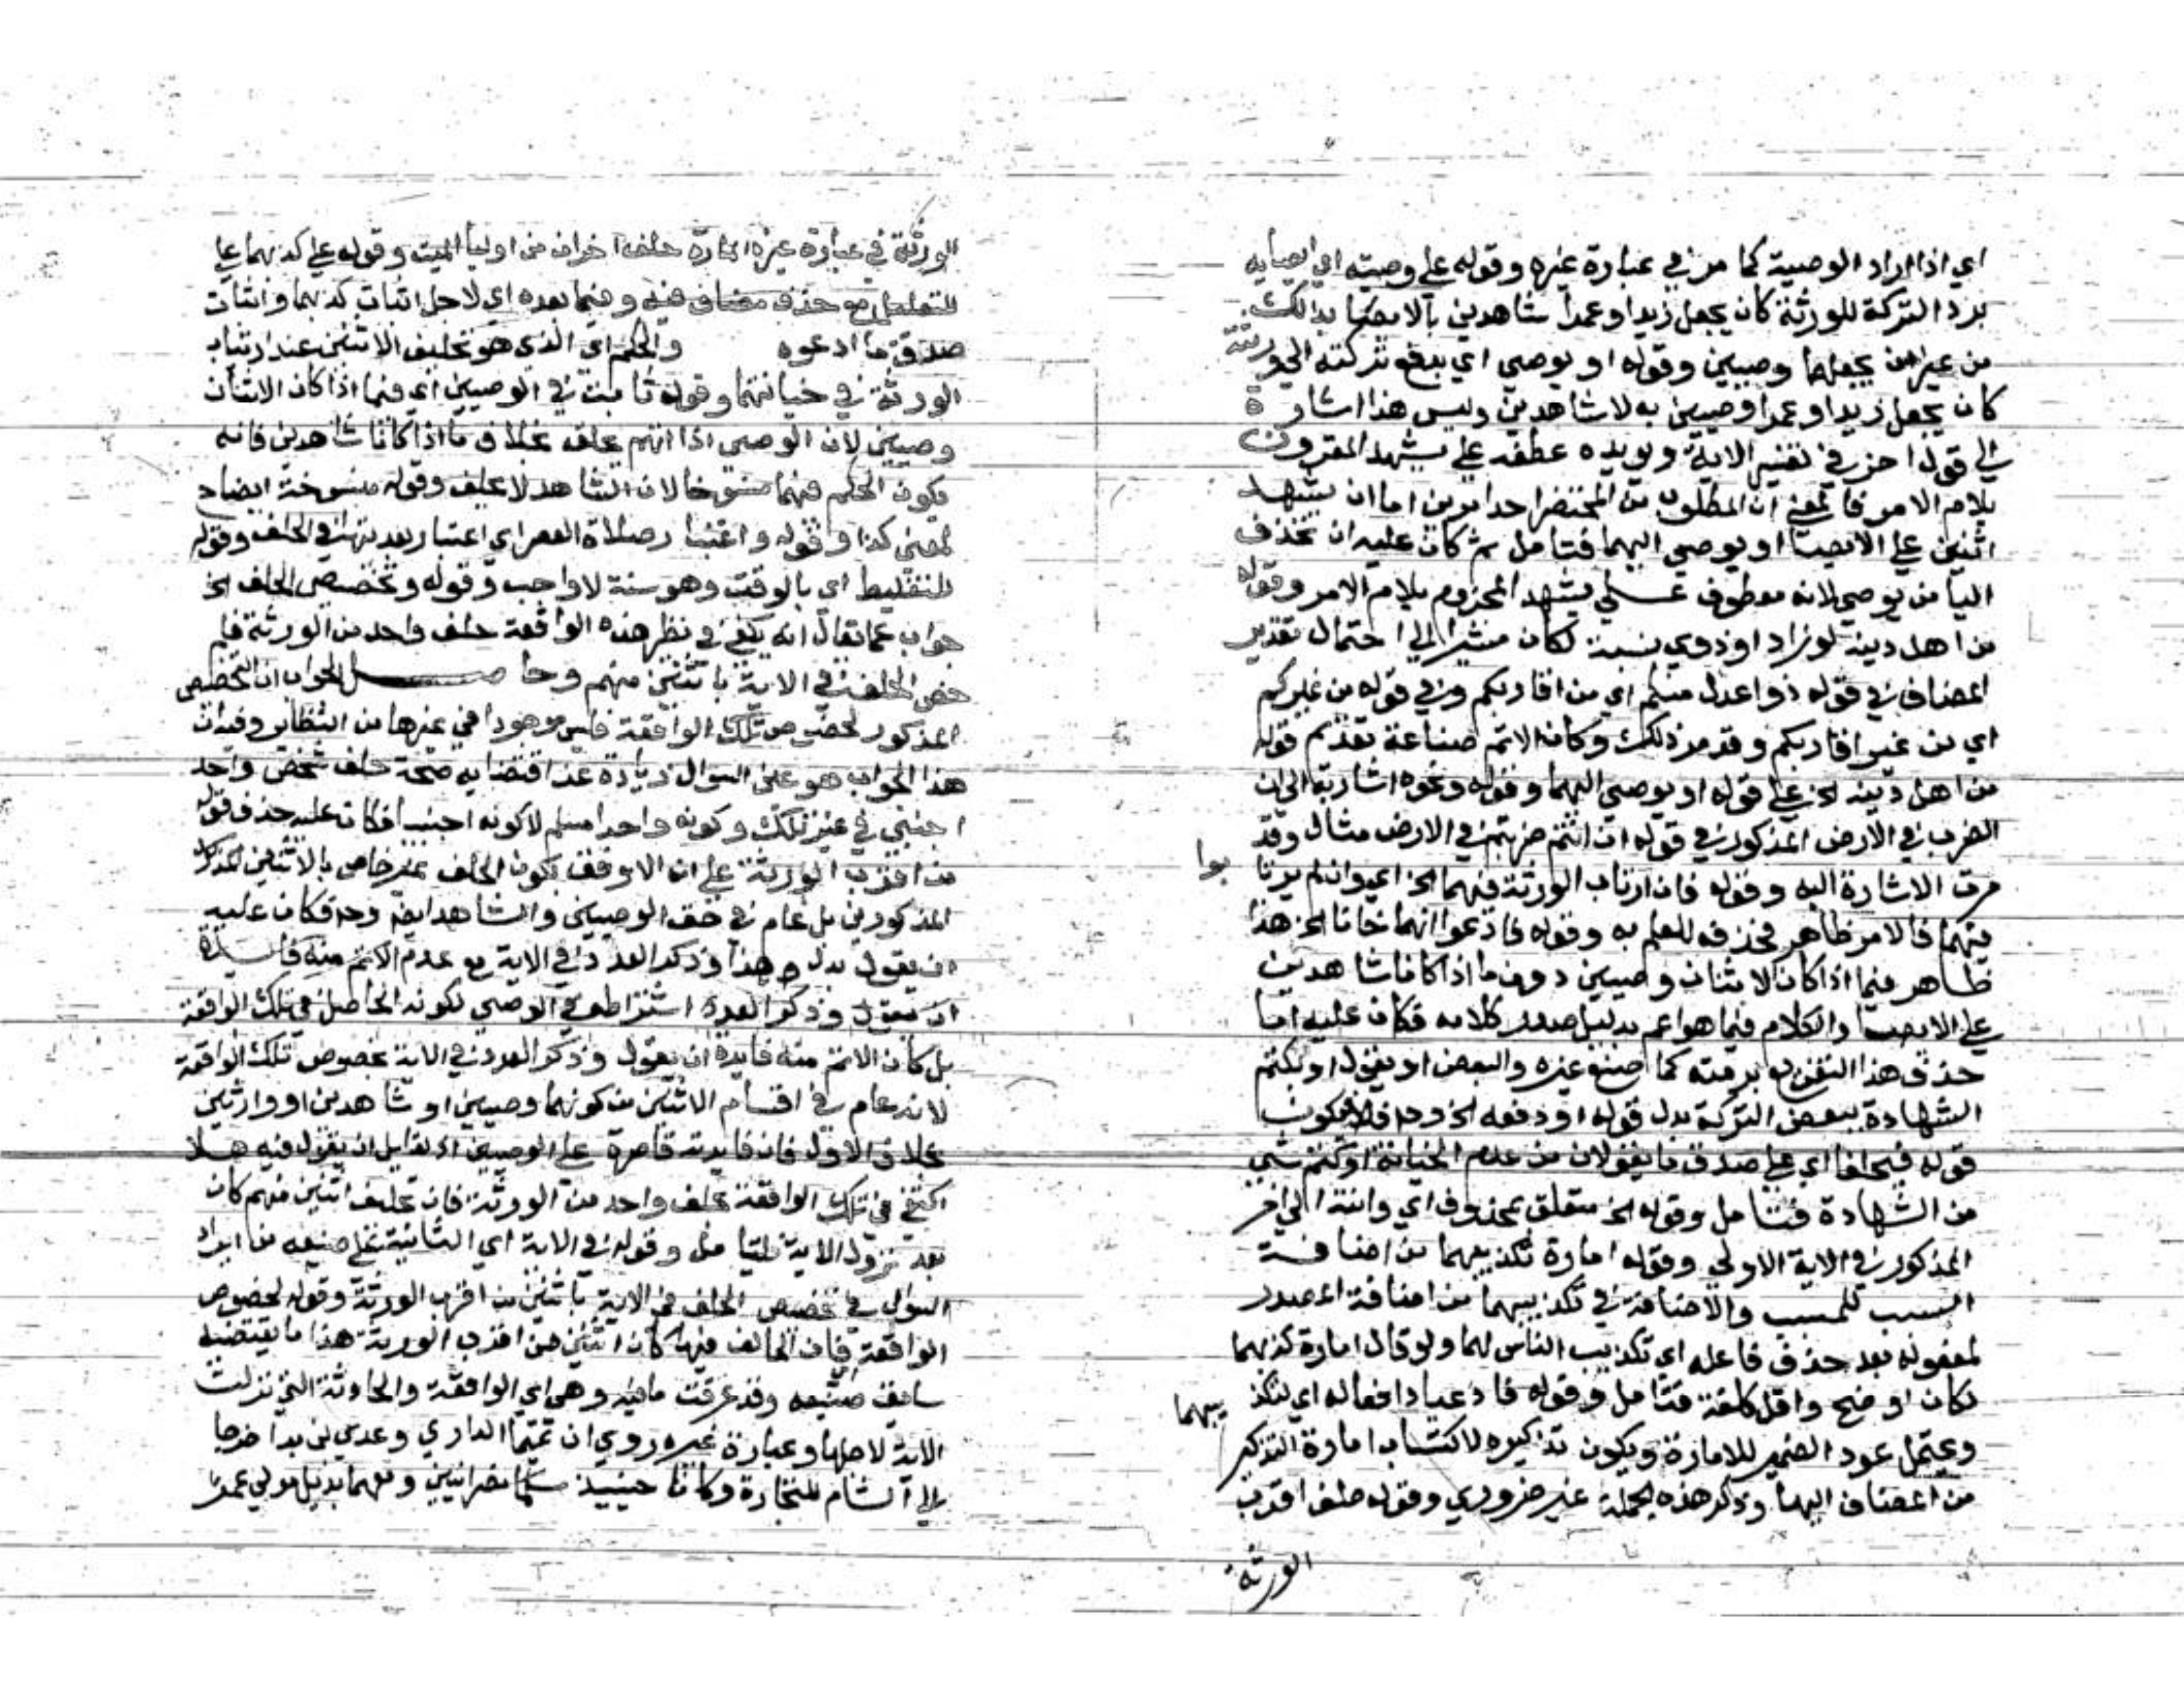 اي اذا اراد الوصية كما مر في عبارة غيره وقوله على وصيته اي ايصايه
برد التركة للورثة كان يجعل زيدا وعمرا شاهدين بالايصا بذالك
من غير ان يجعلهما وصيين وقوله او يوصي اي بدفع تركته الى ورثته
كان يجعل زيدا وعمرا وصيين به لا شاهدين وليس هذا اشارة
الى قول اخر في تفسير الاية ويويده عطفه على يشهد المقرون
بلام الامر فالمعنى ان المطلوب من المحتضر احد امرين اما ان يشهد
اثنين على الايصا او يوصي اليهما فتامل ثم كان عليه ان يحذف
اليا من يوصي لانه معطوف على يشهد المجزوم بلام الامر وقوله
من اهل دينه لو زاد او ذوي نسبة لكان مشيرا الى احتمال تقدير
المضاف في قوله ذوا عدل منكم اي من اقاربكم وفي قوله من غيركم
اي من غير اقاربكم وقد مر ذلك وكان الاتم صناعة تقديم قوله
من اهل دينه الخ على قوله او يوصي اليهما وقوله ونحوه اشار به الى ان
الضرب في الارض المذكور في قوله ان انتم ضربتم في الارض مثال وقد
مرت الاشارة اليه وقوله فان ارتاب الورثة فيهما الخ اي وان لم يرتا بوا
فيهما فالامر ظاهر فحذفه للعلم به وقوله فادعوا انهما خانا الخ هذا
ظاهر فيما اذا كان الاثنان وصيين دون ما اذا كانا شاهدين
على الايصا والكلام فيما هو اعم بدليل صدر كلامه فكان عليه اما
حذف هذا التفريع برمته كما صنع غيره والبعض او يقول او بكتم
الشهادة ببعض التركة بدل قوله او دفعه الخ وح فلا يكون
قوله فيحلفا اي على صدق ما يقولان من عدم الخيانة او كتم شي
من الشهادة فتامل وقوله الخ متعلق بمحذوف اي وانته الى اخر
المذكور في الاية الاولى وقوله امارة تكذيبهما من اضافة
السبب للمسبب والاضافة في تكذيبهما من اضافة المصدر
لمفعوله بعد حذف فاعله اي تكذيب الناس لهما ولو قال امارة كذبهما
لكان اوضح واقل كلفة فتامل وقوله فادعيا دافعا له اي لتكذ يبهما
ويحتمل عود الضمير للامارة ويكون تذكيره لاكتساب امارة التذكير
من المضاف اليها وذكر هذه الجملة غير ضروري وقوله حلف اقرب
الورثة
الورثة في عبارة غيره حلف اخران من اوليا الميت وقوله على كذبهما على
للتعليل مع حذف مضاف فيه وفيما بعده اي لاجل اثبات كذبهما واثبات
صدق ما ادعوه والحكم اي الذي هو تحليف الاثنين عند ارتياب
الورثة في خيانتهما وقوله ثابت في الوصيين اي فيما اذا كان الاثنان
وصيين لان الوصي اذا اتهم يحلف بخلاف ما اذا كانا شاهدين فانه
يكون الحكم فيهما منسوخا لان الشاهد لا يحلف وقوله منسوخة ايضاح
لمعنى كذا وقوله واعتبار صلاة العصر اي اعتبار بعديتها في الحلف وقوله
للتغليظ اي بالوقت وهو سنة لا واجب وقوله وتخصيص الحلف الخ
جواب عما يقال انه يكفي في نظر هذه الواقعة حلف واحد من الورثة فلم
خص الحلف في الاية باثنين منهم وحاصل الجواب ان التخصيص
المذكور لخصوص تلك الواقعة فليس موجودا في غيرها من النظاير وفيه ان
هذا الجواب هو عين السوال زيادة عن اقتضايه صحة حلف شخص واحد
اجنبي في غير تلك وكونه واحدا مسلم لا كونه اجنبيا فكان عليه حذف قوله
من اقرب الورثة على ان الاوفق بكون الحلف غير خاص بالاثنين
المذكورين بل عام في حق الوصيين والشاهد ايضا وح فكان عليه
ان يقول بدل هذا وذكر العدد في الاية مع عدم الاتم منه فايدة
ان يقول وذكر العدد اشتراطه في الوصي لكونه الحاصل في تلك الواقعة
بل كان الاتم منه فايدة ان يقول وذكر العدد في الاية لخصوص تلك الواقعة
لانه عام في اقسام الاثنين من كونهما وصيين او شاهدين او وارثين
بخلاف الاول فان فايدته قاصرة على الوصيين اذ لقايل ان يقول فيه هلا
اكتفي في تلك الواقعة بحلف واحد من الورثة فان تحليف اثنين منهم كان
بعد نزول الاية فليتامل وقوله في الاية اي الثانية على صنيعه من ايراد
السوال في تخصيص الحلف في الاية باثنين من اقرب الورثة وقوله لخصوص
الواقعة فان الحالف فيها كان اثنين من اقرب الورثة هذا ما يقتضيه
سابق صنيعه وقد عرفت ما فيه وهي اي الواقعة والحادثة التي نزلت
الاية لاجلها وعبارة غيره روي ان تميما الداري وعدي بن بدا خرجا
الى الشام للتجارة وكانا حينيذ نصرانيين ومعهما بديل مولى عمرو